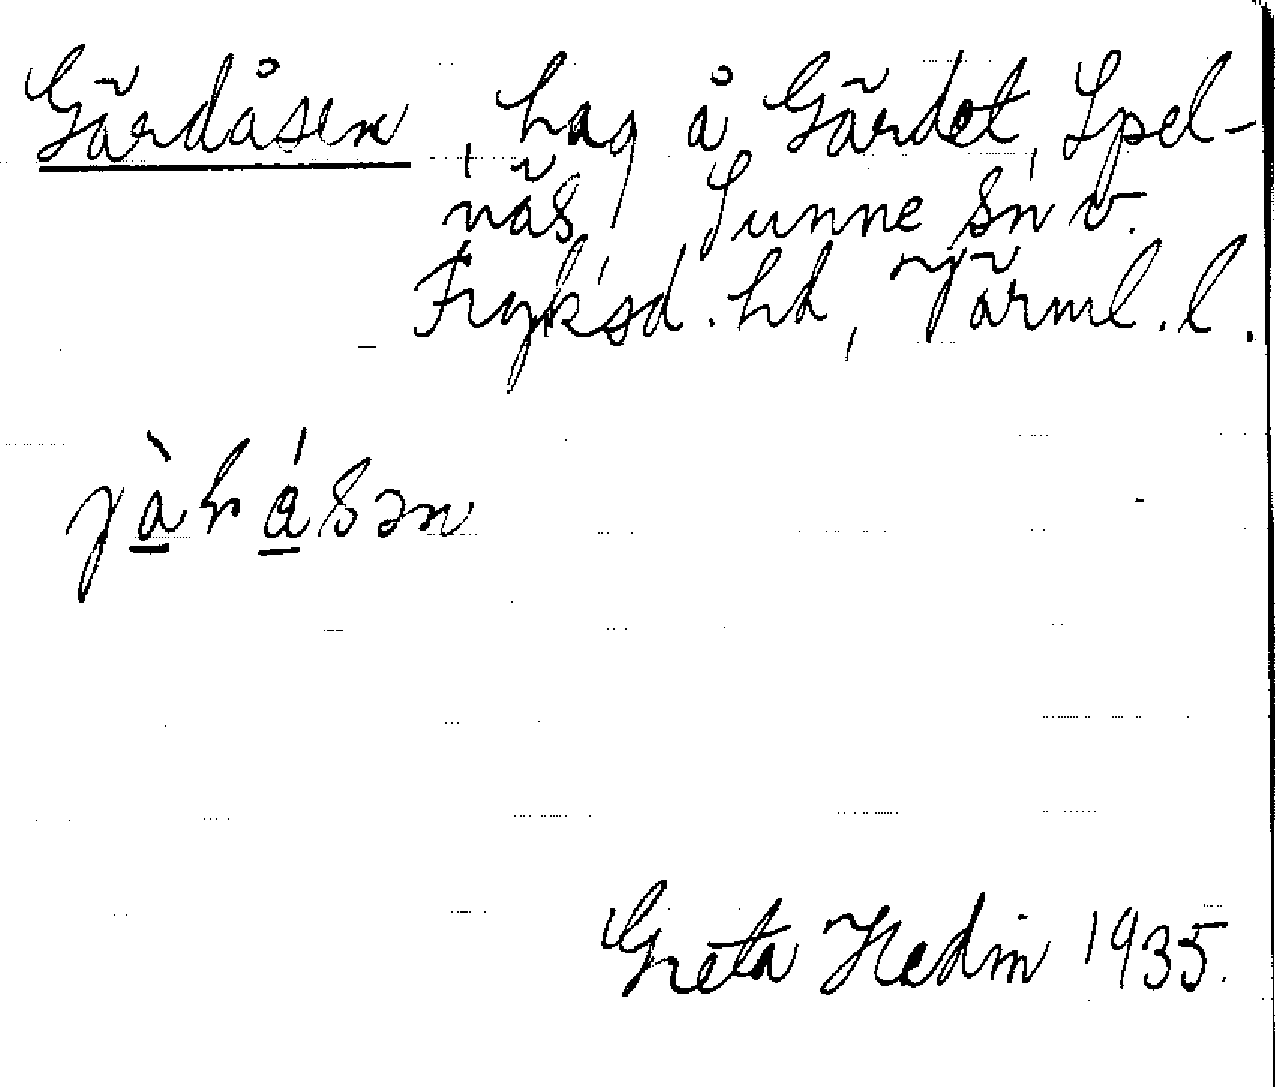 Gärdåsen, hag å Gärdet, Spel-
näs, Sunne sn v.
Fryksd. hd, Värml. l.
Greta Hedin 1935.